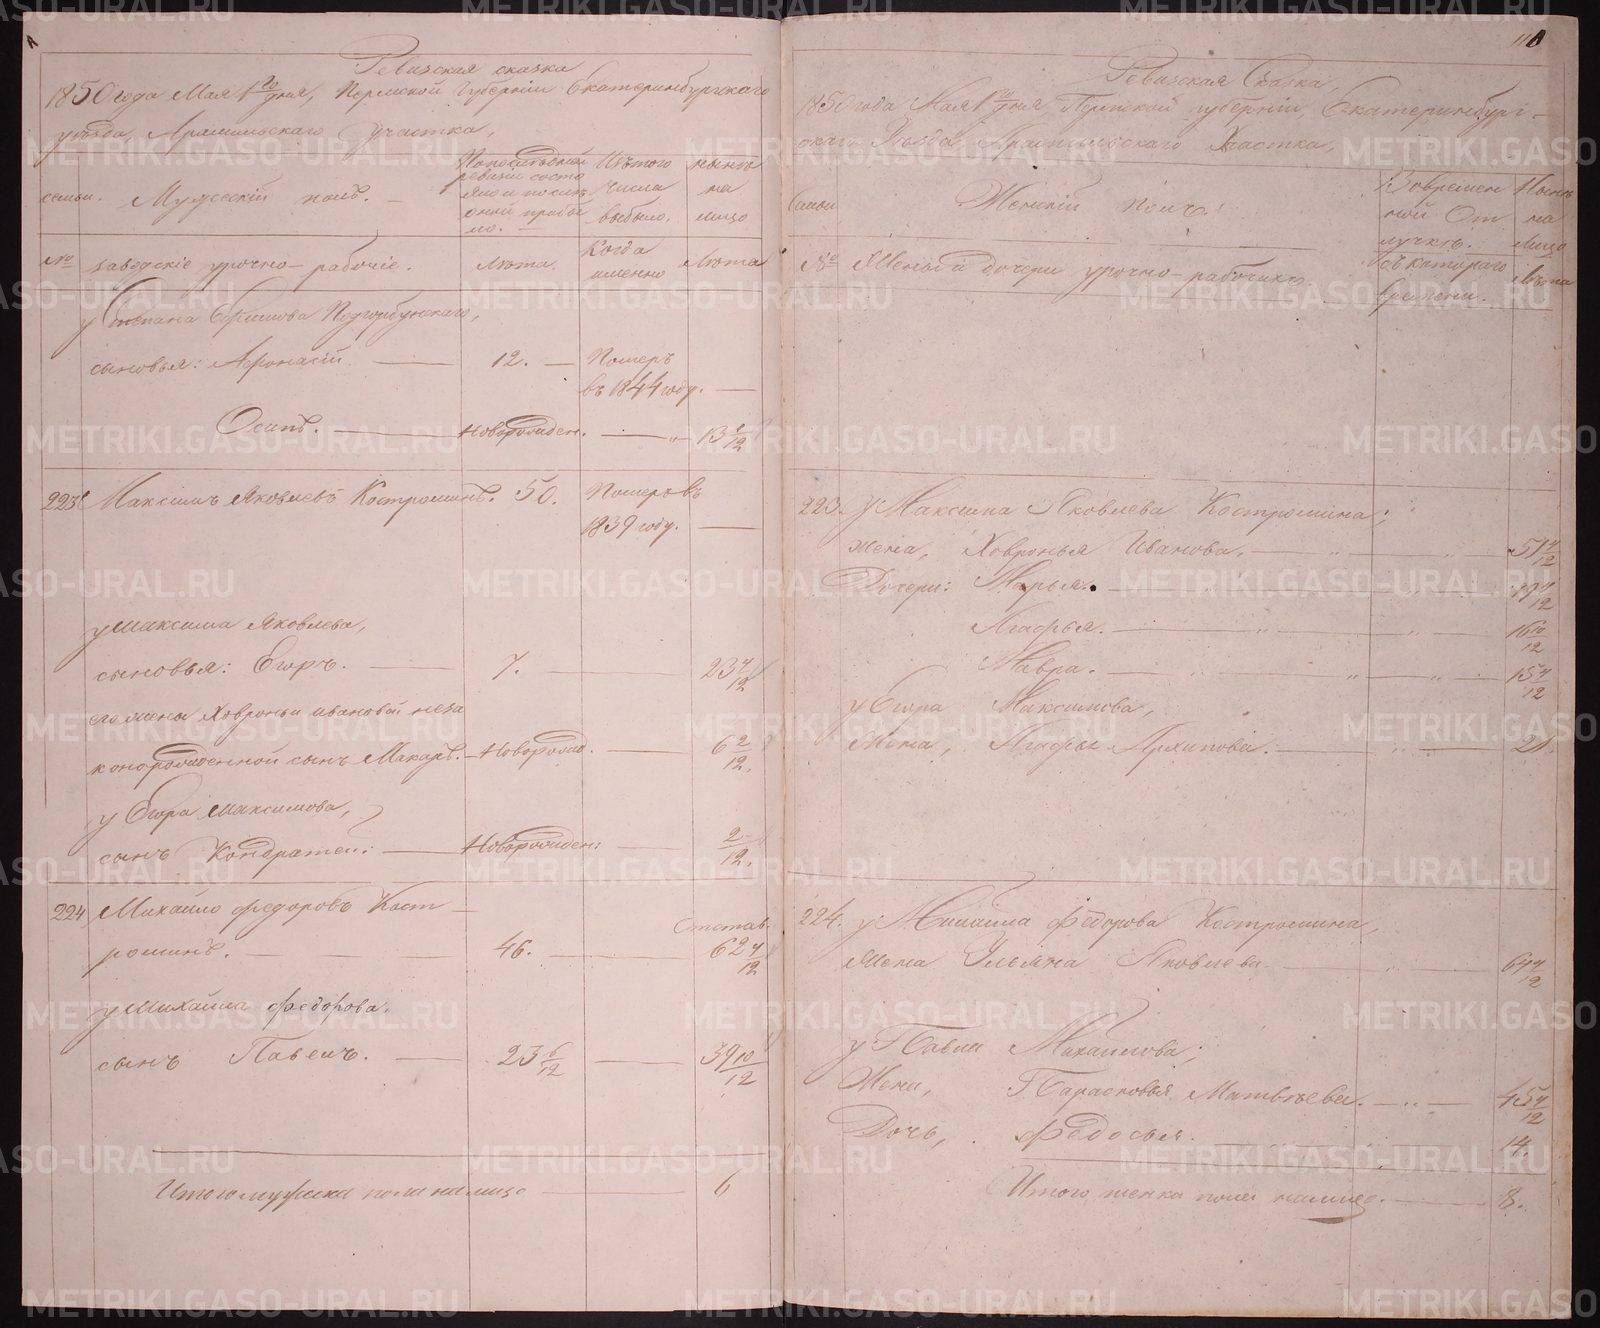 Ревизская сказка
1850 года Мая 1го дня, Пермской Губерніи Екатеринбургскаго
уѣзда, Арамильскаго участка,
семьи. Мужескій полъ. По последней ревизіи состояло и после оной прибыло. Изъ того числа выбыло. нынѣ на лицо
№ заводскіе урочно-рабочіе. Лѣта. Когда именно Лѣта
у Степана Ефимова Подгорбунскаго,
сыновья: Афонасій 12. Померъ
въ 1844 году.
Осипъ. Новорожден. 13
223 Максимъ Яковлевъ Костроминъ. 50. Померъ въ
1839 году.
у Максима Яковлева,
сыновья: Егоръ. 7. 23 4/12
его жены Ховроньи Ивановой неза
конорожденной сынъ Макаръ. Новорожд. 6 2/12.
у Егора Максимова,
сынъ Кондратей: Новорожден: 2/12.
224 Михайло Федоровъ Кост
Отстав.
роминъ. 46. 62 4/12
у Михайла Федорова.
сынъ Павелъ. 23 6/12 39 10/12
Итого мужеска пола на лицо 6
Ревизская Сказка,
1850 года Мая 1го дня Пермской губерніи, Екатеринбург-
скаго Уѣзда Арамильскаго Участка,
Семьи Женскій полъ. Во временной отлучкѣ. Нынѣ на лицо
№ Жены и дочери урочно-рабочихъ. Съ котораго времени. Лѣта
223. У Максима Яковлева Костромина;
жена, Ховронья Иванова. 51 4/12
Дочери: Марья. 19 4/12
Агафья. 16
Мавра. 15 4/12
у Егора Максимова,
Жена, Агафья Архипова. 21.
224. у Михайла Федорова Костромина,
Жена Ульяна Яковлева 64 4/12
у Павла Михайлова;
Жена, Парасковья Матвѣева. 45 4/12
Дочь, Федосья. 14.
Итого женска пола налицо. 8.
METRIKI.GASO-URAL.RU